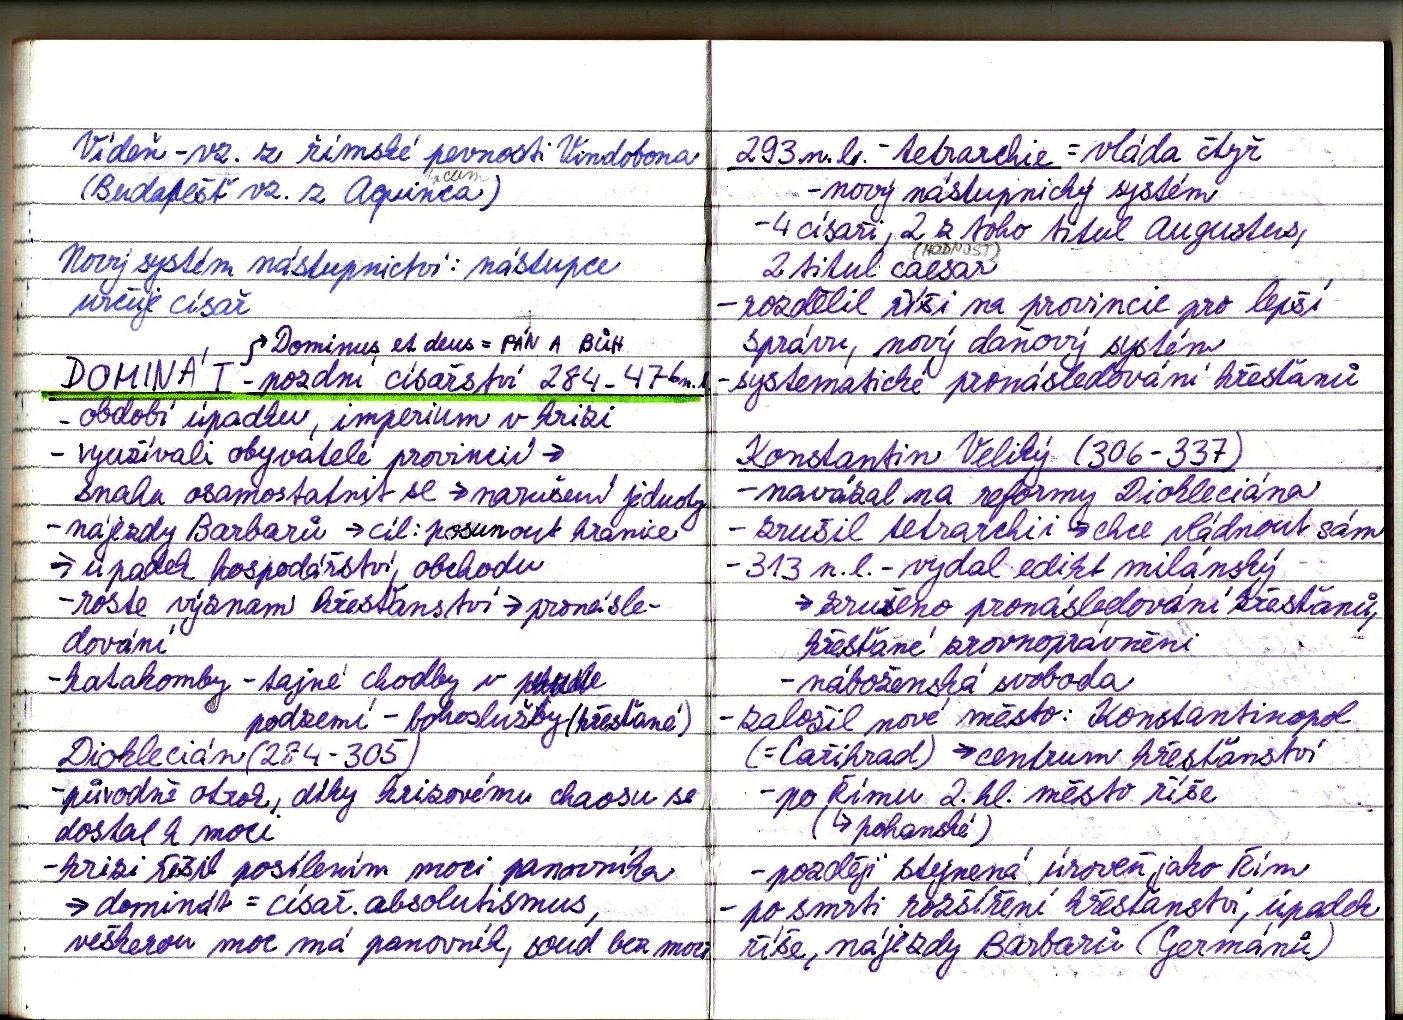 Vídeň - vz. z římské pevnosti Vindobona
cum
(Budapešť vz. z Aquinca)
Nový systém nástupnictví: nástupce
určuje císař
→ Dominus et deus = PÁN A BŮH
DOMINÁT - pozdní císařství 284 - 476 n. l.
- období úpadku, imperium v krizi
- využívali obyvatelé provincií →
snaha osamostatnit se → narušení jednoty
- nájezdy Barbarů → cíl: posunout hranice
→ úpadek hospodářství, obchodu
- roste význam křesťanství → pronásle-
dování
- katakomby - tajné chodby v
podzemí - bohoslužby (křesťané)
Dioklecián (284 - 305)
- původně otrok, díky krizovému chaosu se
dostal k moci
- krizi řešil posílením moci panovníka
→ dominát = císař. absolutismus,
veškerou moc má panovník, soud bez moci
293 n. l. - tetrarchie = vláda čtyř
- nový nástupnický systém
- 4 císaři, 2 z toho titul Augustus,
(HODNOST)
2 titul caesar
- rozdělil říši na provincie pro lepší
správu, nový daňový systém
- systematické pronásledování křesťanů
Konstantin Veliký (306 - 337)
- navázal na reformy Diokleciána
- zrušil tetrarchii → chce vládnout sám
- 313 n. l. - vydal edikt milánský
→ zrušeno pronásledování křesťanů,
křesťané zrovnoprávněni
- náboženská svoboda
- založil nové město: Konstantinopol
(= Cařihrad) → centrum křesťanství
- po Římu 2. hl. město říše
(↳ pohanské)
- později stejnená úroveň jako Řím
- po smrti rozšíření křesťanství, úpadek
říše, nájezdy Barbarů (Germánů)